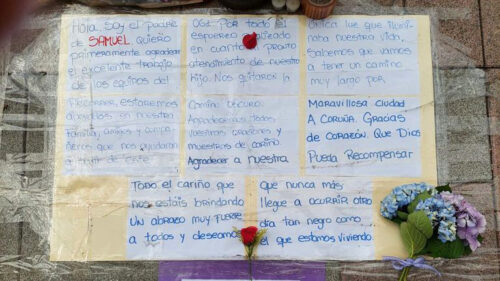 Hola, Soy el padre
de SAMUEL, quiero
primeramente agradecer
el excelente trabajo
de los equipos del
061. Por todo el
esfuerzo
en cuanto pronto
atendimiento de nuestro
hijo. Nos quitaron la
única luz que ilumi
naba nuestra vida,
Sabemos que vamos
a tener un camino
muy largo por
Recorrer, estaremos
apoyados en nuestra
Familia, amigos y compa
ñeros que nos ayudaran
a salir de este
Camino oscuro.
Agradecemos todas
vuestras oraciones y
muestras de cariño.
Agradecer a nuestra
Maravillosa ciudad
A Coruña. Gracias
de corazón. Que Dios
Pueda Recompensar
Todo el cariño que
nos estáis brindando
un abrazo muy fuerte
a todos y deseamos
que nunca más
llegue a ocurrir otro
día tan negro como
el que estamos viviendo.